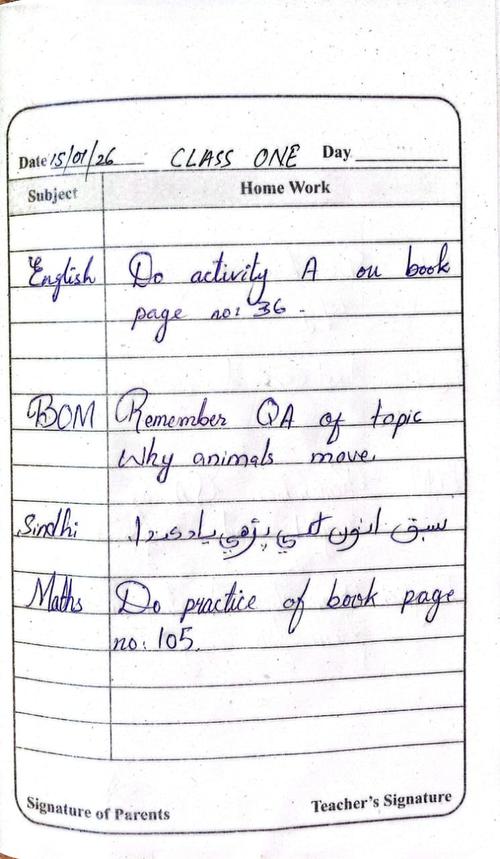 Date 15/01/26 CLASS ONE Day
Subject Home Work
English Do activity A on book
page no: 36.
BOM Remember QA of topic
Why animals move.
Sindhi سبق پڙهي ياد
Maths Do practice of book page
no: 105.
Signature of Parents Teacher's Signature